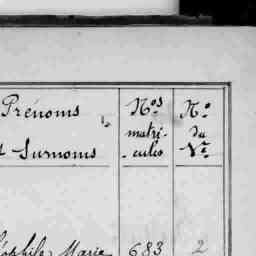 Prénoms
t Surnoms
Nos
matri-
-cules
No
du
Vt.
éophile Marie 683 2